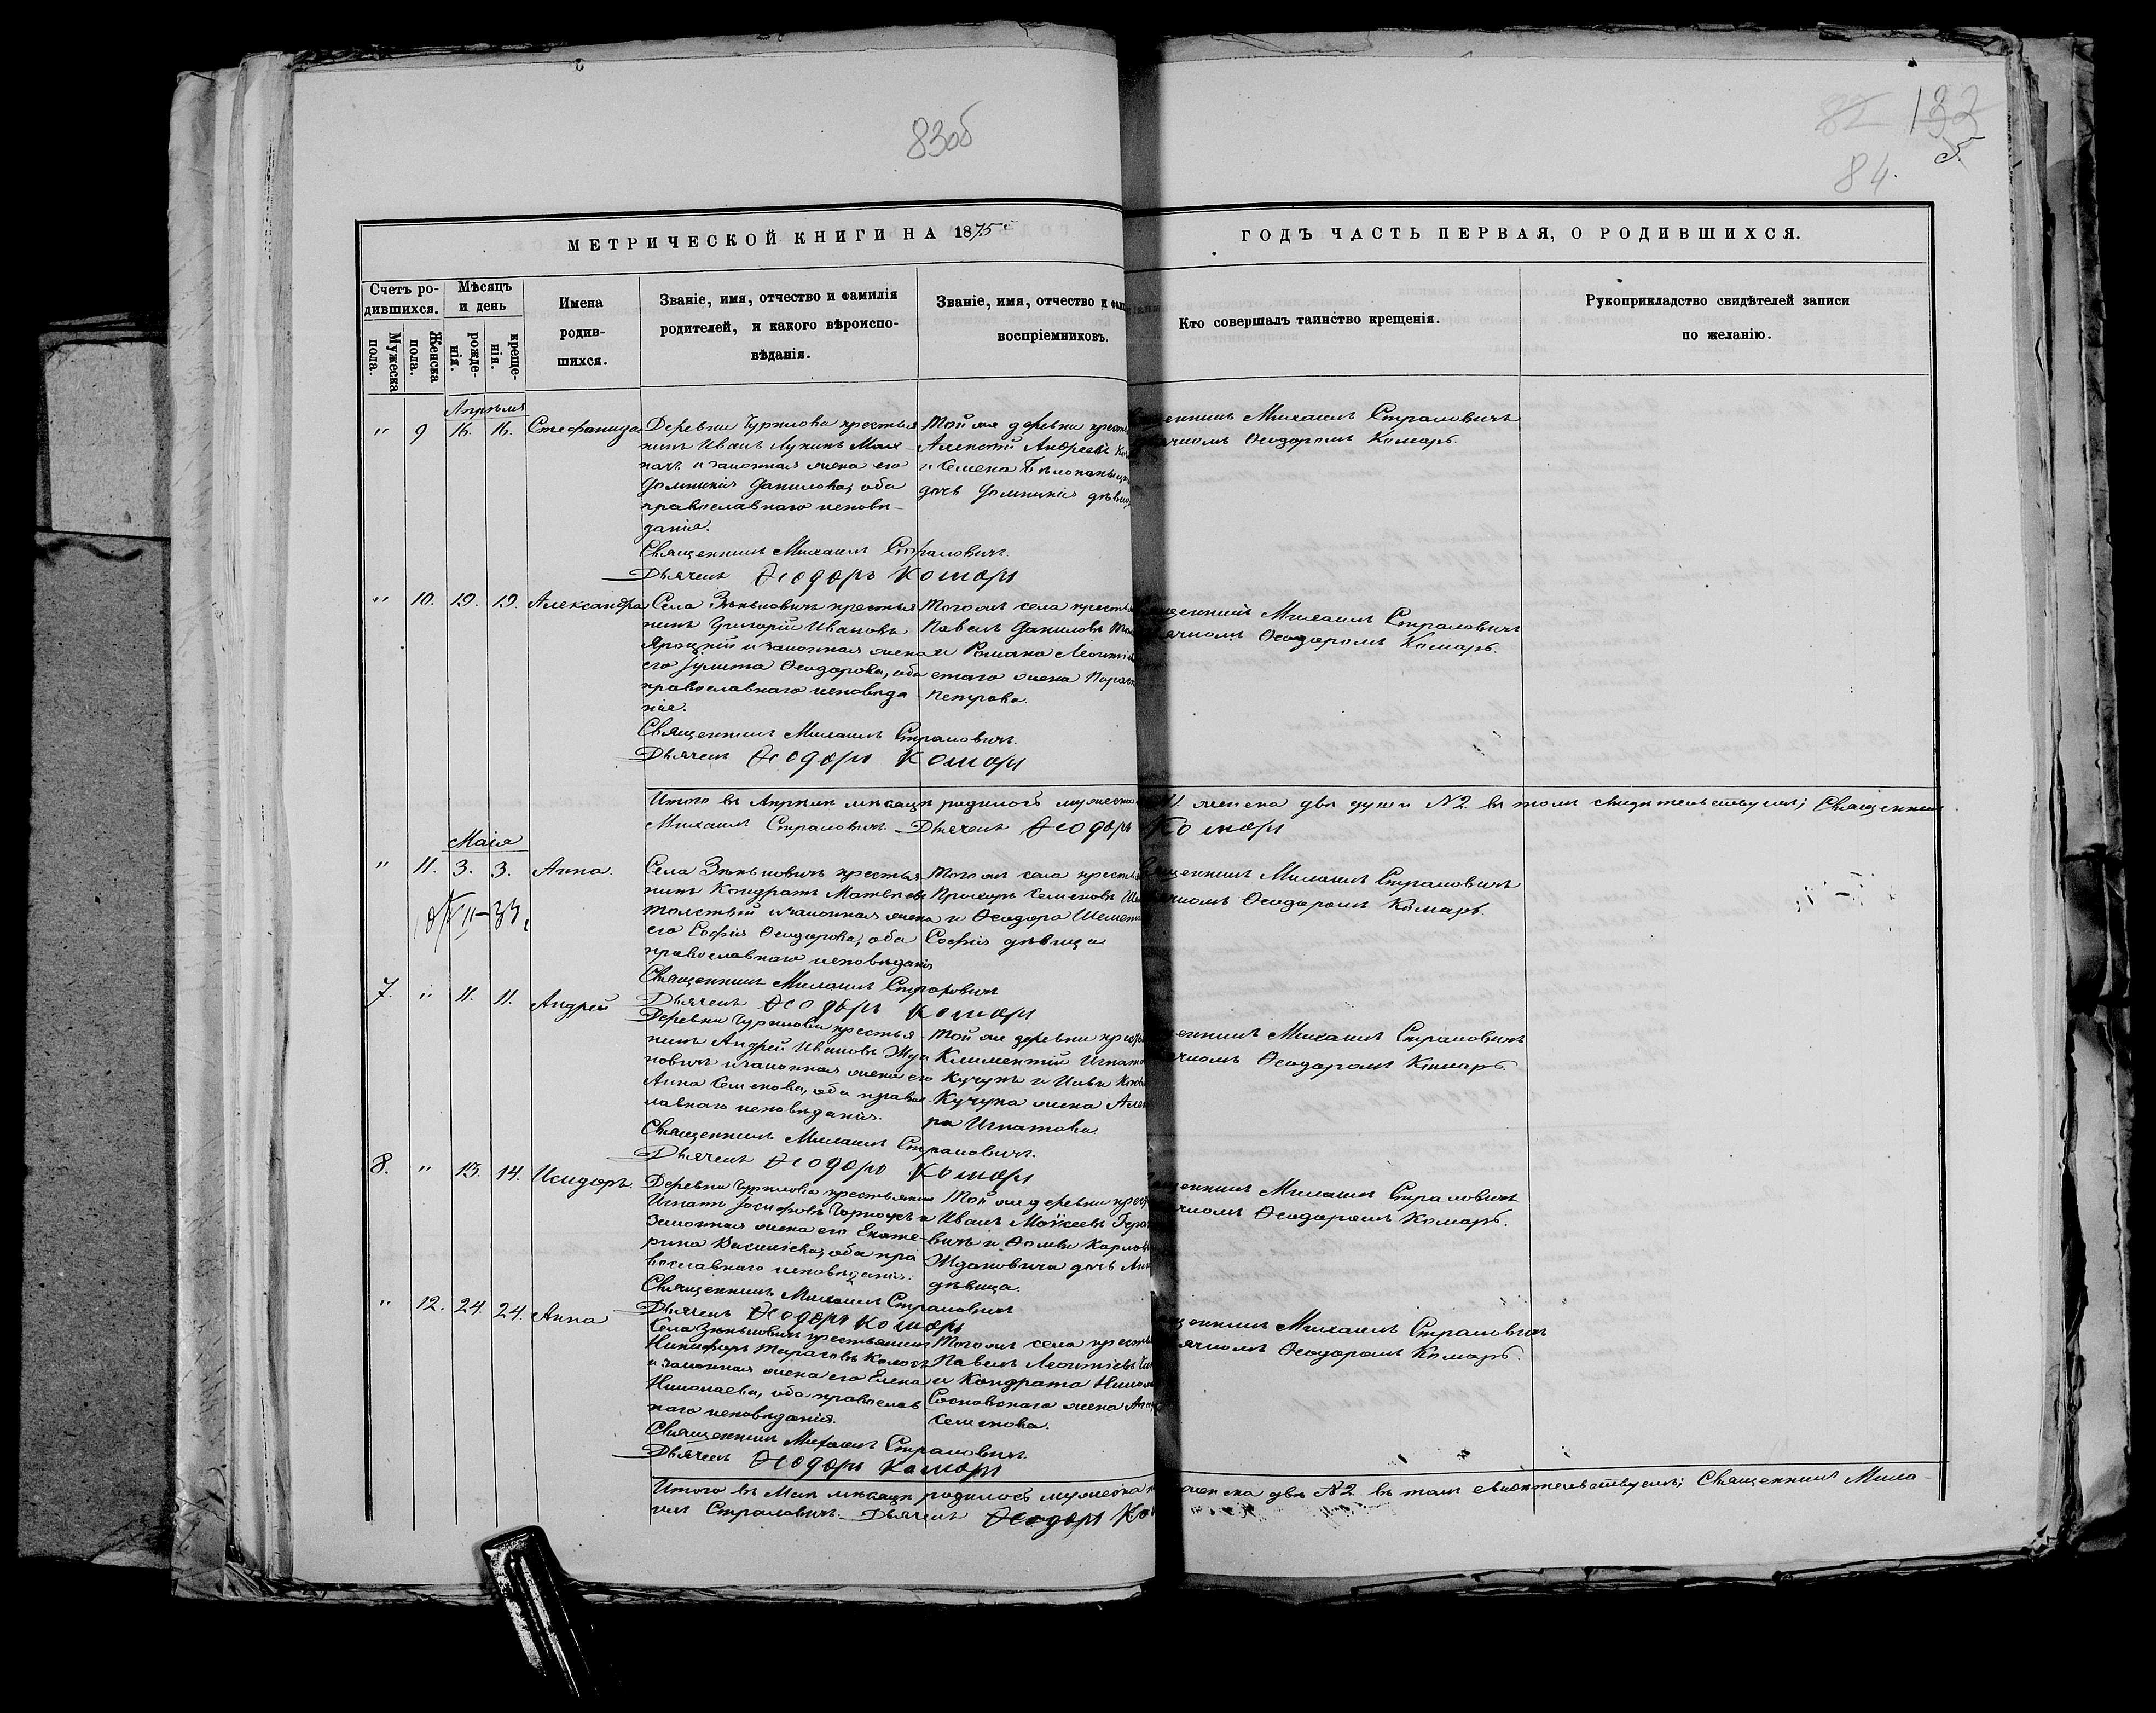 83об
82 132
84.
МЕТРИЧЕСКОЙ КНИГИ НА 1875й
ГОДЪ ЧАСТЬ ПЕРВАЯ, О РОДИВШИХСЯ.
Счетъ родившихся.
Мужеска пола.
Женска пола.
Мѣсяцъ и день
рожденія.
крещенія.
Имена родившихся.
Званіе, имя, отчество и фамилія
родителей, и какого вѣроиспо-
вѣданія.
Званіе, имя, отчество и фам
воспріемниковъ.
Кто совершалъ таинство крещенія.
Рукоприкладство свидѣтелей записи
по желанію.
Апрѣля
" 9 16. 16. Стефанида
Деревни крестья
нинъ Иванъ Лукинъ
и законная жена его
Домникія Данилова, оба
православнаго исповѣ-
данія.
Священникъ Михаилъ Страловичъ.
Дьячекъ Ѳеодоръ Комаръ
Той же деревни крест
Алексѣй Андреевъ
и Семена
дочь Домникія дѣвица
щенникъ Михаилъ Страловичъ
ячкомъ Ѳеодоромъ Комаръ.
" 10. 19. 19. Александра
Села Зѣньковичъ крестья
нинъ Григорій Ивановъ
Яроцкій и законная жена
его Іулита Ѳеодорова, оба
православнаго исповѣда
нія.
Священникъ Михаилъ Страловичъ.
Дьячекъ Ѳеодоръ Комаръ
Того же села кресть
Павелъ Даниловъ
и Романа Леонтіе
жена
Петрова.
щенникъ Михаилъ Страловичъ
ячкомъ Ѳеодоромъ Комаръ.
Итого въ Апрѣлѣ мѣсяцѣ родилось мужеска женска двѣ души №2 въ томъ свидѣтельствуемъ; Священникъ
Михаилъ Страловичъ. Дьячекъ Ѳеодоръ Комаръ
Маія
" 11. 3. 3. Анна.
Села Зѣньковичъ крестья
нинъ Кондратъ Матвѣевъ
Толстый и законная жена
его Софія Ѳеодорова, оба
православнаго исповѣданія
Священникъ Михаилъ Страловичъ
Дьячекъ Ѳеодоръ Комаръ
Того же села кресть
Прохоръ Семеновъ
и Ѳеодора
Софія дѣвица
щенникъ Михаилъ Страловичъ
ячкомъ Ѳеодоромъ Комаръ.
7. " 11. 11. Андрей
Деревни крестья
нинъ Андрей Ивановъ Жда
новичъ и законная жена его
Анна Семенова, оба правос
лавнаго исповѣданія.
Священникъ Михаилъ Страловичъ.
Дьячекъ Ѳеодоръ Комаръ
Той же деревни крест
Климентій Игнато
Кучукъ и Ильи
Кучука жена Алек
ра Игнатова
щенникъ Михаилъ Страловичъ
ячкомъ Ѳеодоромъ Комаръ.
8. " 13. 14. Исидоръ.
Деревни крестьянинъ
Игнатъ Іосифовъ и
законная жена его Екате-
рина Василіева, оба пра
вославнаго исповѣданія.
Священникъ Михаилъ Страловичъ
Дьячекъ Ѳеодоръ Комаръ
Той же деревни крест
Иванъ Моѵсеевъ
вичъ и Ѳомы Карпова
Ждановича дочь Анн
дѣвица.
щенникъ Михаилъ Страловичъ
ячкомъ Ѳеодоромъ Комаръ.
" 12. 24. 24. Анна
Села Зѣньковичъ крестьянинъ
Никифоръ Тарасовъ
и законная жена его Елена
Николаева, оба православ
наго исповѣданія.
Священникъ Михаилъ Страловичъ.
Дьячекъ Ѳеодоръ Комаръ
Того же села кресть
Павелъ Леонтіевъ
и Кондрата Никола
Сосновскаго жена
Семенова.
щенникъ Михаилъ Страловичъ
ячкомъ Ѳеодоромъ Комаръ.
Итого въ Маѣ мѣсяцѣ родилось мужеска женска двѣ №2 въ томъ свидѣтельствуемъ; Священникъ Миха-
илъ Страловичъ. Дьячекъ Ѳеодоръ Ко